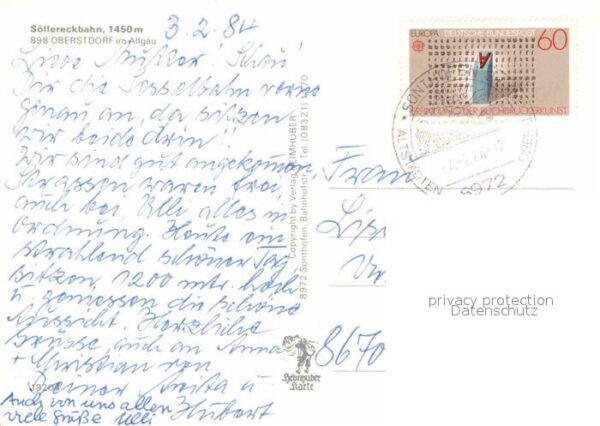 Söllereckbahn, 1450 m
898 OBERSTDORF im Allgäu
3.2.84
Liebe Mutter! Schau'
Dir die Sesselbahn vorne
genau an, da sitzen
wir beide drin!!
Wir sind gut angekommen
Strassen waren frei
auch bei Ulli alles in
Ordnung. Heute ein
strahlend schöner Tag
sitzen 1200 mtr. hoch
u. genossen die schöne
Aussicht. Herzliche
Grüsse auch an Anna
+ Christian von
Deiner Anita u
Hubert
Auch von uns allen
viele Grüße Ulli
Copyright by Verlag HEIMHUBER
8972 Sonthofen, Bahnhofstr. Tel. (08321)
Heimhuber
Karte
EUROPA DEUTSCHE BUNDESPOST
60
ERFINDUNG DER BUCHDRUCKERKUNST
8972
Frau
8670
privacy protection
Datenschutz